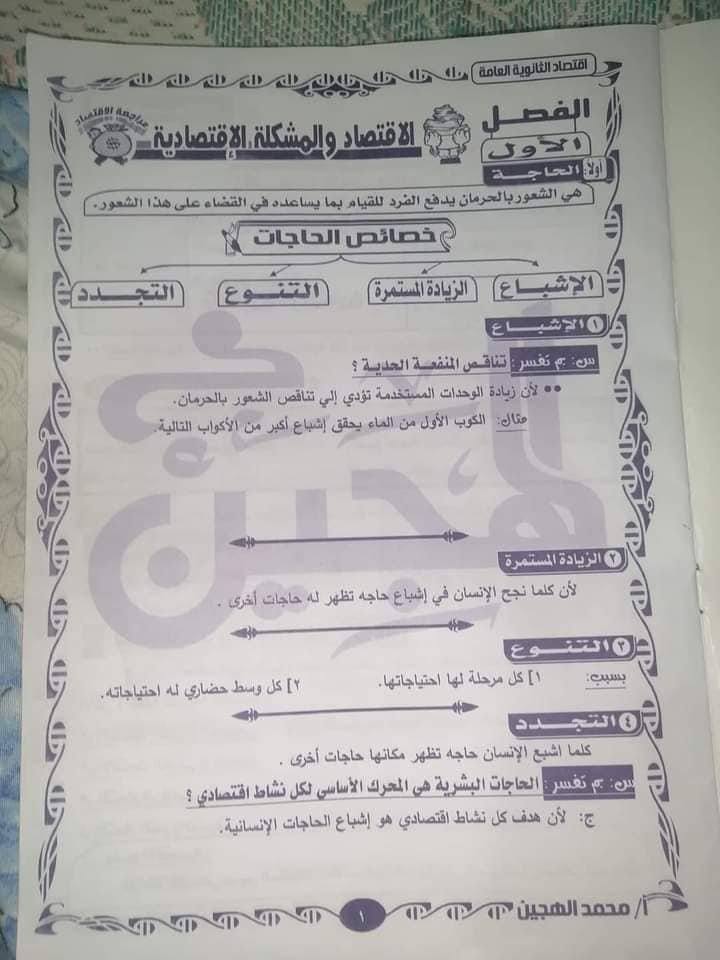 اقتصاد الثانوية العامة
مراجعة الاقتصاد
الفصل الأول
الاقتصاد والمشكلة الإقتصادية
أولاً: الحاجة
هي الشعور بالحرمان يدفع الفرد للقيام بما يساعده في القضاء على هذا الشعور.
خصائص الحاجات
الإشباع الزيادة المستمرة التنوع التجدد
١ الإشباع
س: بم تفسر: تناقص المنفعة الحدية ؟
•• لأن زيادة الوحدات المستخدمة تؤدي إلي تناقص الشعور بالحرمان.
مثال: الكوب الأول من الماء يحقق إشباع أكبر من الأكواب التالية.
الهجين
٢ الزيادة المستمرة
لأن كلما نجح الإنسان في إشباع حاجه تظهر له حاجات أخرى .
٣ التنوع
بسبب: ١] كل مرحلة لها احتياجاتها. ٢] كل وسط حضاري له احتياجاته.
٤ التجدد
كلما اشبع الإنسان حاجه تظهر مكانها حاجات أخرى .
س: بم تفسر: الحاجات البشرية هي المحرك الأساسي لكل نشاط اقتصادي ؟
ج: لأن هدف كل نشاط اقتصادي هو إشباع الحاجات الإنسانية.
أ/ محمد الهجين
١